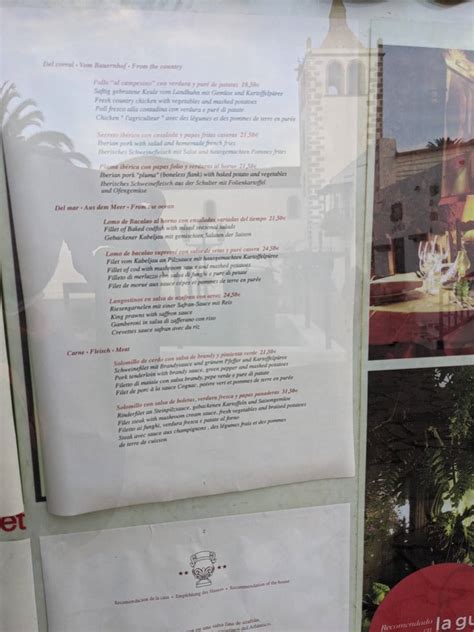 Del corral - Vom Bauernhof - From the country
Pollo "al campesino" con verdura y puré de patatas 18,50€
Saftig gebratene Keule vom Landhuhn mit Gemüse und Kartoffelpüree
Fresh country chicken with vegetables and mashed potatoes
Poll fresco alla contadina con verdura e puré di patate
Chicken "l'agriculteur" avec des légumes et des pommes de terre en purée
Secreto ibérico con ensalada y papas fritas caseras 21,50€
Iberian pork with salad and homemade french fries
Iberisches Schweinefleisch mit Salat und hausgemachten Pommes frites
Pluma ibérica con papas y verduras al horno 21,50€
Iberian pork "pluma" (boneless flank) with baked potato and vegetables
Iberisches Schweinefleisch aus der Schulter mit Folienkartoffel
und Ofengemüse
Del mar - Aus dem Meer - From the ocean
Lomo de Bacalao al horno con ensaladas variadas del tiempo 21,50€
Fillet of Baked codfish with mixed seasonal salads
Gebackener Kabeljau mit gemischten Salaten der Saison
Lomo de bacalao con salsa de setas y puré casero 24,50€
Filet vom Kabeljau an Pilzsauce mit hausgemachtem Kartoffelpüree
Fillet of cod with mushroom sauce and mashed potato
Filetto di merluzzo con salsa di funghi e puré di patate
Filet de morue aux sauce cèpes et pommes de terre en purée
Langostinos en salsa de azafran con arroz 24,50€
Riesengarnelen mit einer Safran-Sauce mit Reis
King prawns with saffron sauce
Gamberoni in salsa di zafferano con riso
Crevettes sauce safran avec du riz
Carne - Fleisch - Meat
Solomillo de cerdo con salsa de brandy y pimienta verde 21,50€
Schweinefilet mit Brandysauce und grünem Pfeffer und Kartoffelpüree
Pork tenderloin with brandy sauce, green pepper and mashed potatoes
Filetto di maiale con salsa brandy, pepe verde e puré di patate
Filet de porc à la sauce Cognac, poivre vert et pommes de terre en purée
Solomillo con salsa de boletus, verdura fresca y papas panaderas 31,50€
Rinderfilet an Steinpilzsauce, gebackenen Kartoffeln und Saisongemüse
Filet steak with mushroom cream sauce, fresh vegetables and braised potatoes
Filetto ai funghi, verdura fresca e patate al forno
Steak avec sauce aux champignons, des légumes frais et des pommes
de terre de cuisson
et
Recomendacion de la casa • Empfehlung des Hauses • Recommendation of the house
Recomendado
en
la gu